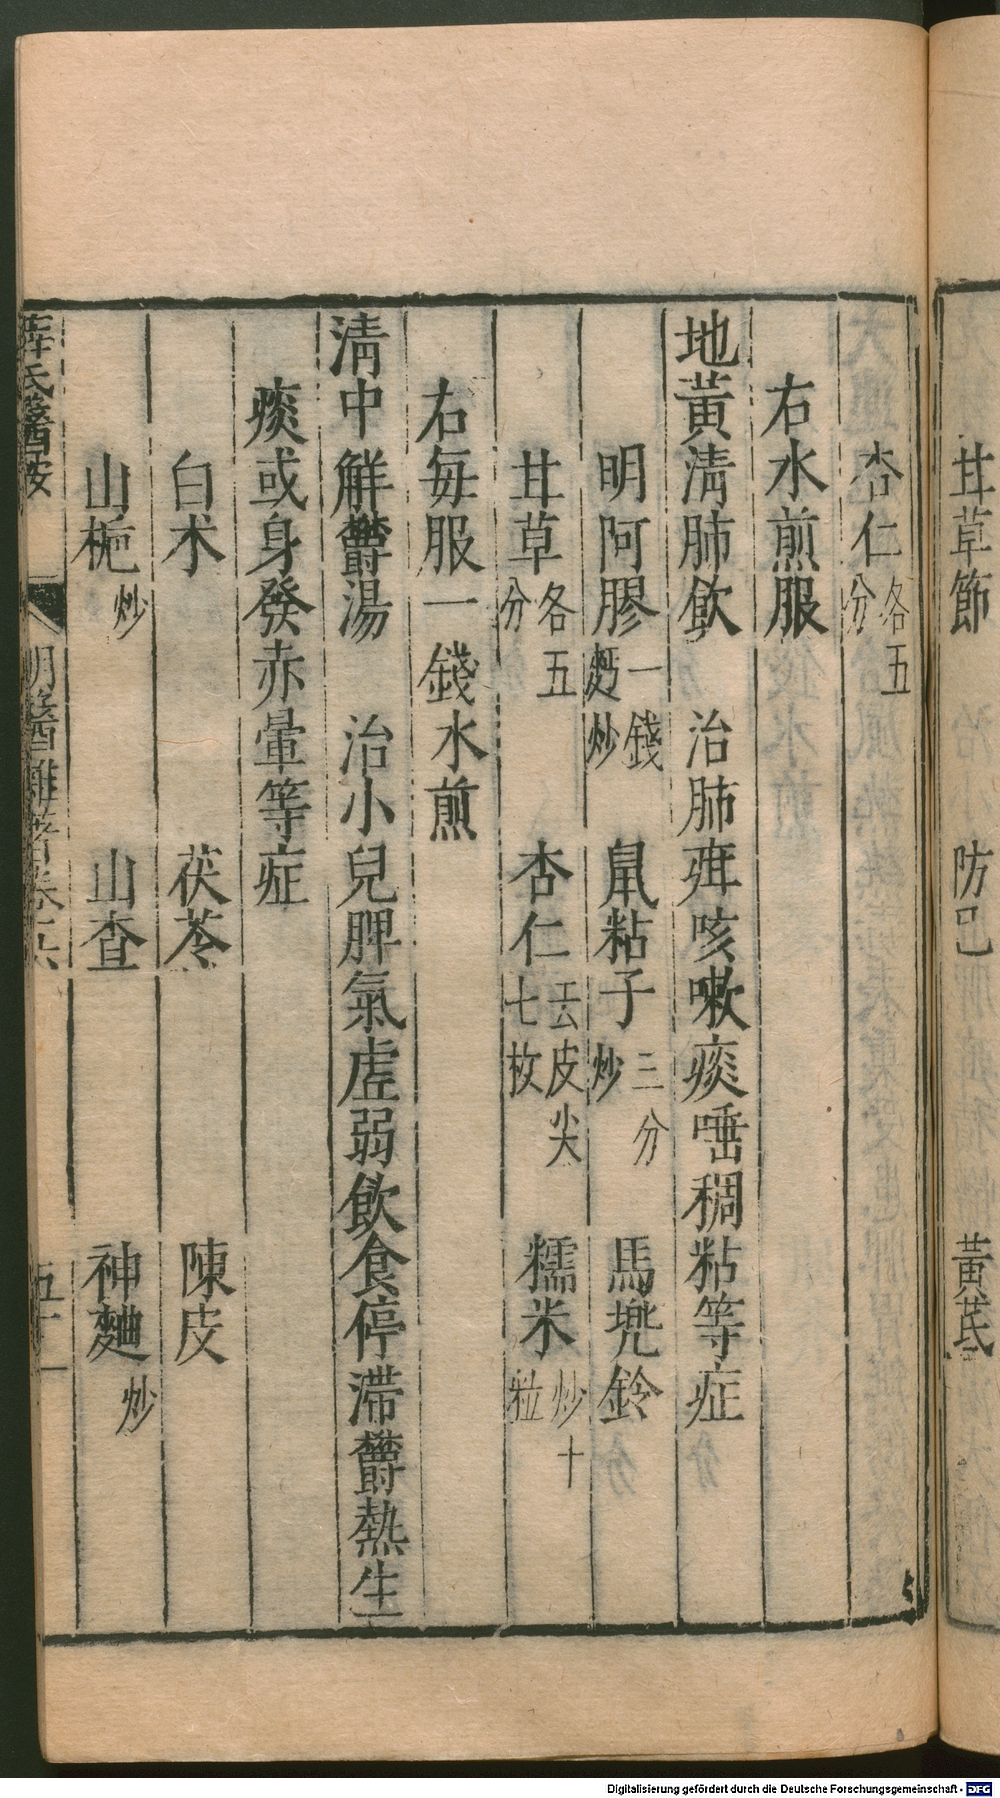 甘草節 防己 黃芪
杏仁各五分
右水煎服
地黃清肺飲 治肺疳咳嗽痰唾稠粘等症
明阿膠一錢麪炒 鼠粘子三分炒 馬兠鈴
甘草各五分 杏仁去皮尖七枚 糯米炒十粒
右每服一錢水煎
清中解欝湯 治小兒脾氣虛弱飲食停滯欝熱生
痰或身發赤暈等症
白术 茯苓 陳皮
山梔炒 山查 神麯炒
薛氏醫按 明醫雜著卷之六 五十一
Digitalisierung gefördert durch die Deutsche Forschungsgemeinschaft - DFG